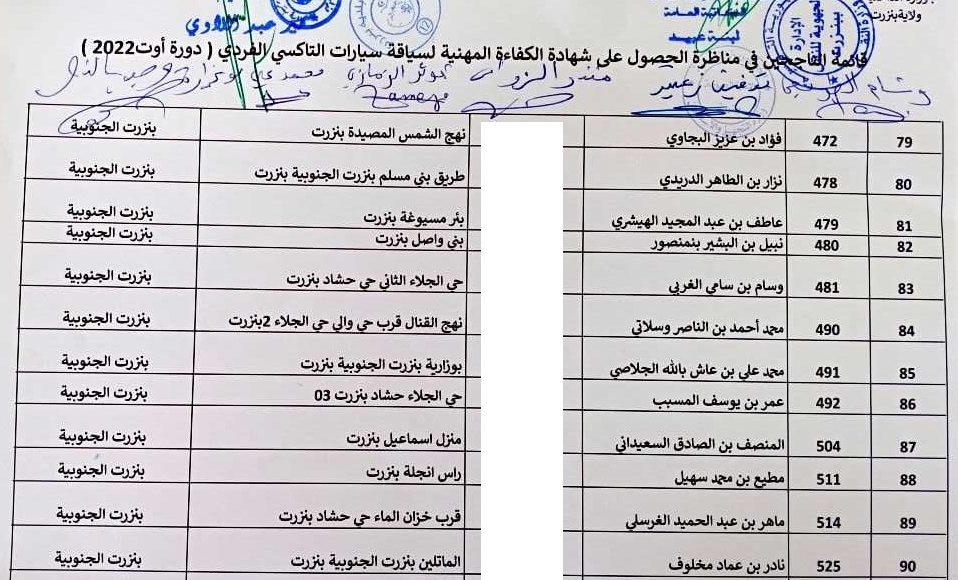 ولاية بنزرت
قائمة الناجحين في مناظرة الحصول على شهادة الكفاءة المهنية لسياقة سيارات التاكسي الفردي ( دورة أوت2022 )
79 472 فؤاد بن عزيز البجاوي نهج الشمس المصيدة بنزرت بنزرت الجنوبية
80 478 نزار بن الطاهر الدريدي طريق بني مسلم بنزرت الجنوبية بنزرت بنزرت الجنوبية
81 479 عاطف بن عبد المجيد الهيشري بئر مسيوغة بنزرت بنزرت الجنوبية
82 480 نبيل بن البشير بنمنصور بني واصل بنزرت بنزرت الجنوبية
83 481 وسام بن سامي الغربي حي الجلاء الثاني حي حشاد بنزرت بنزرت الجنوبية
84 490 محمد أحمد بن الناصر وسلاتي نهج القنال قرب حي والي حي الجلاء 2بنزرت بنزرت الجنوبية
85 491 محمد علي بن عاش بالله الجلاصي بوزارية بنزرت الجنوبية بنزرت بنزرت الجنوبية
86 492 عمر بن يوسف المسبب حي الجلاء حشاد بنزرت 03 بنزرت الجنوبية
87 504 المنصف بن الصادق السعيداني منزل اسماعيل بنزرت بنزرت الجنوبية
88 511 مطيع بن محمد سهيل راس انجلة بنزرت بنزرت الجنوبية
89 514 ماهر بن عبد الحميد الغرسلي قرب خزان الماء حي حشاد بنزرت بنزرت الجنوبية
90 525 نادر بن عماد مخلوف الماتلين بنزرت الجنوبية بنزرت بنزرت الجنوبية